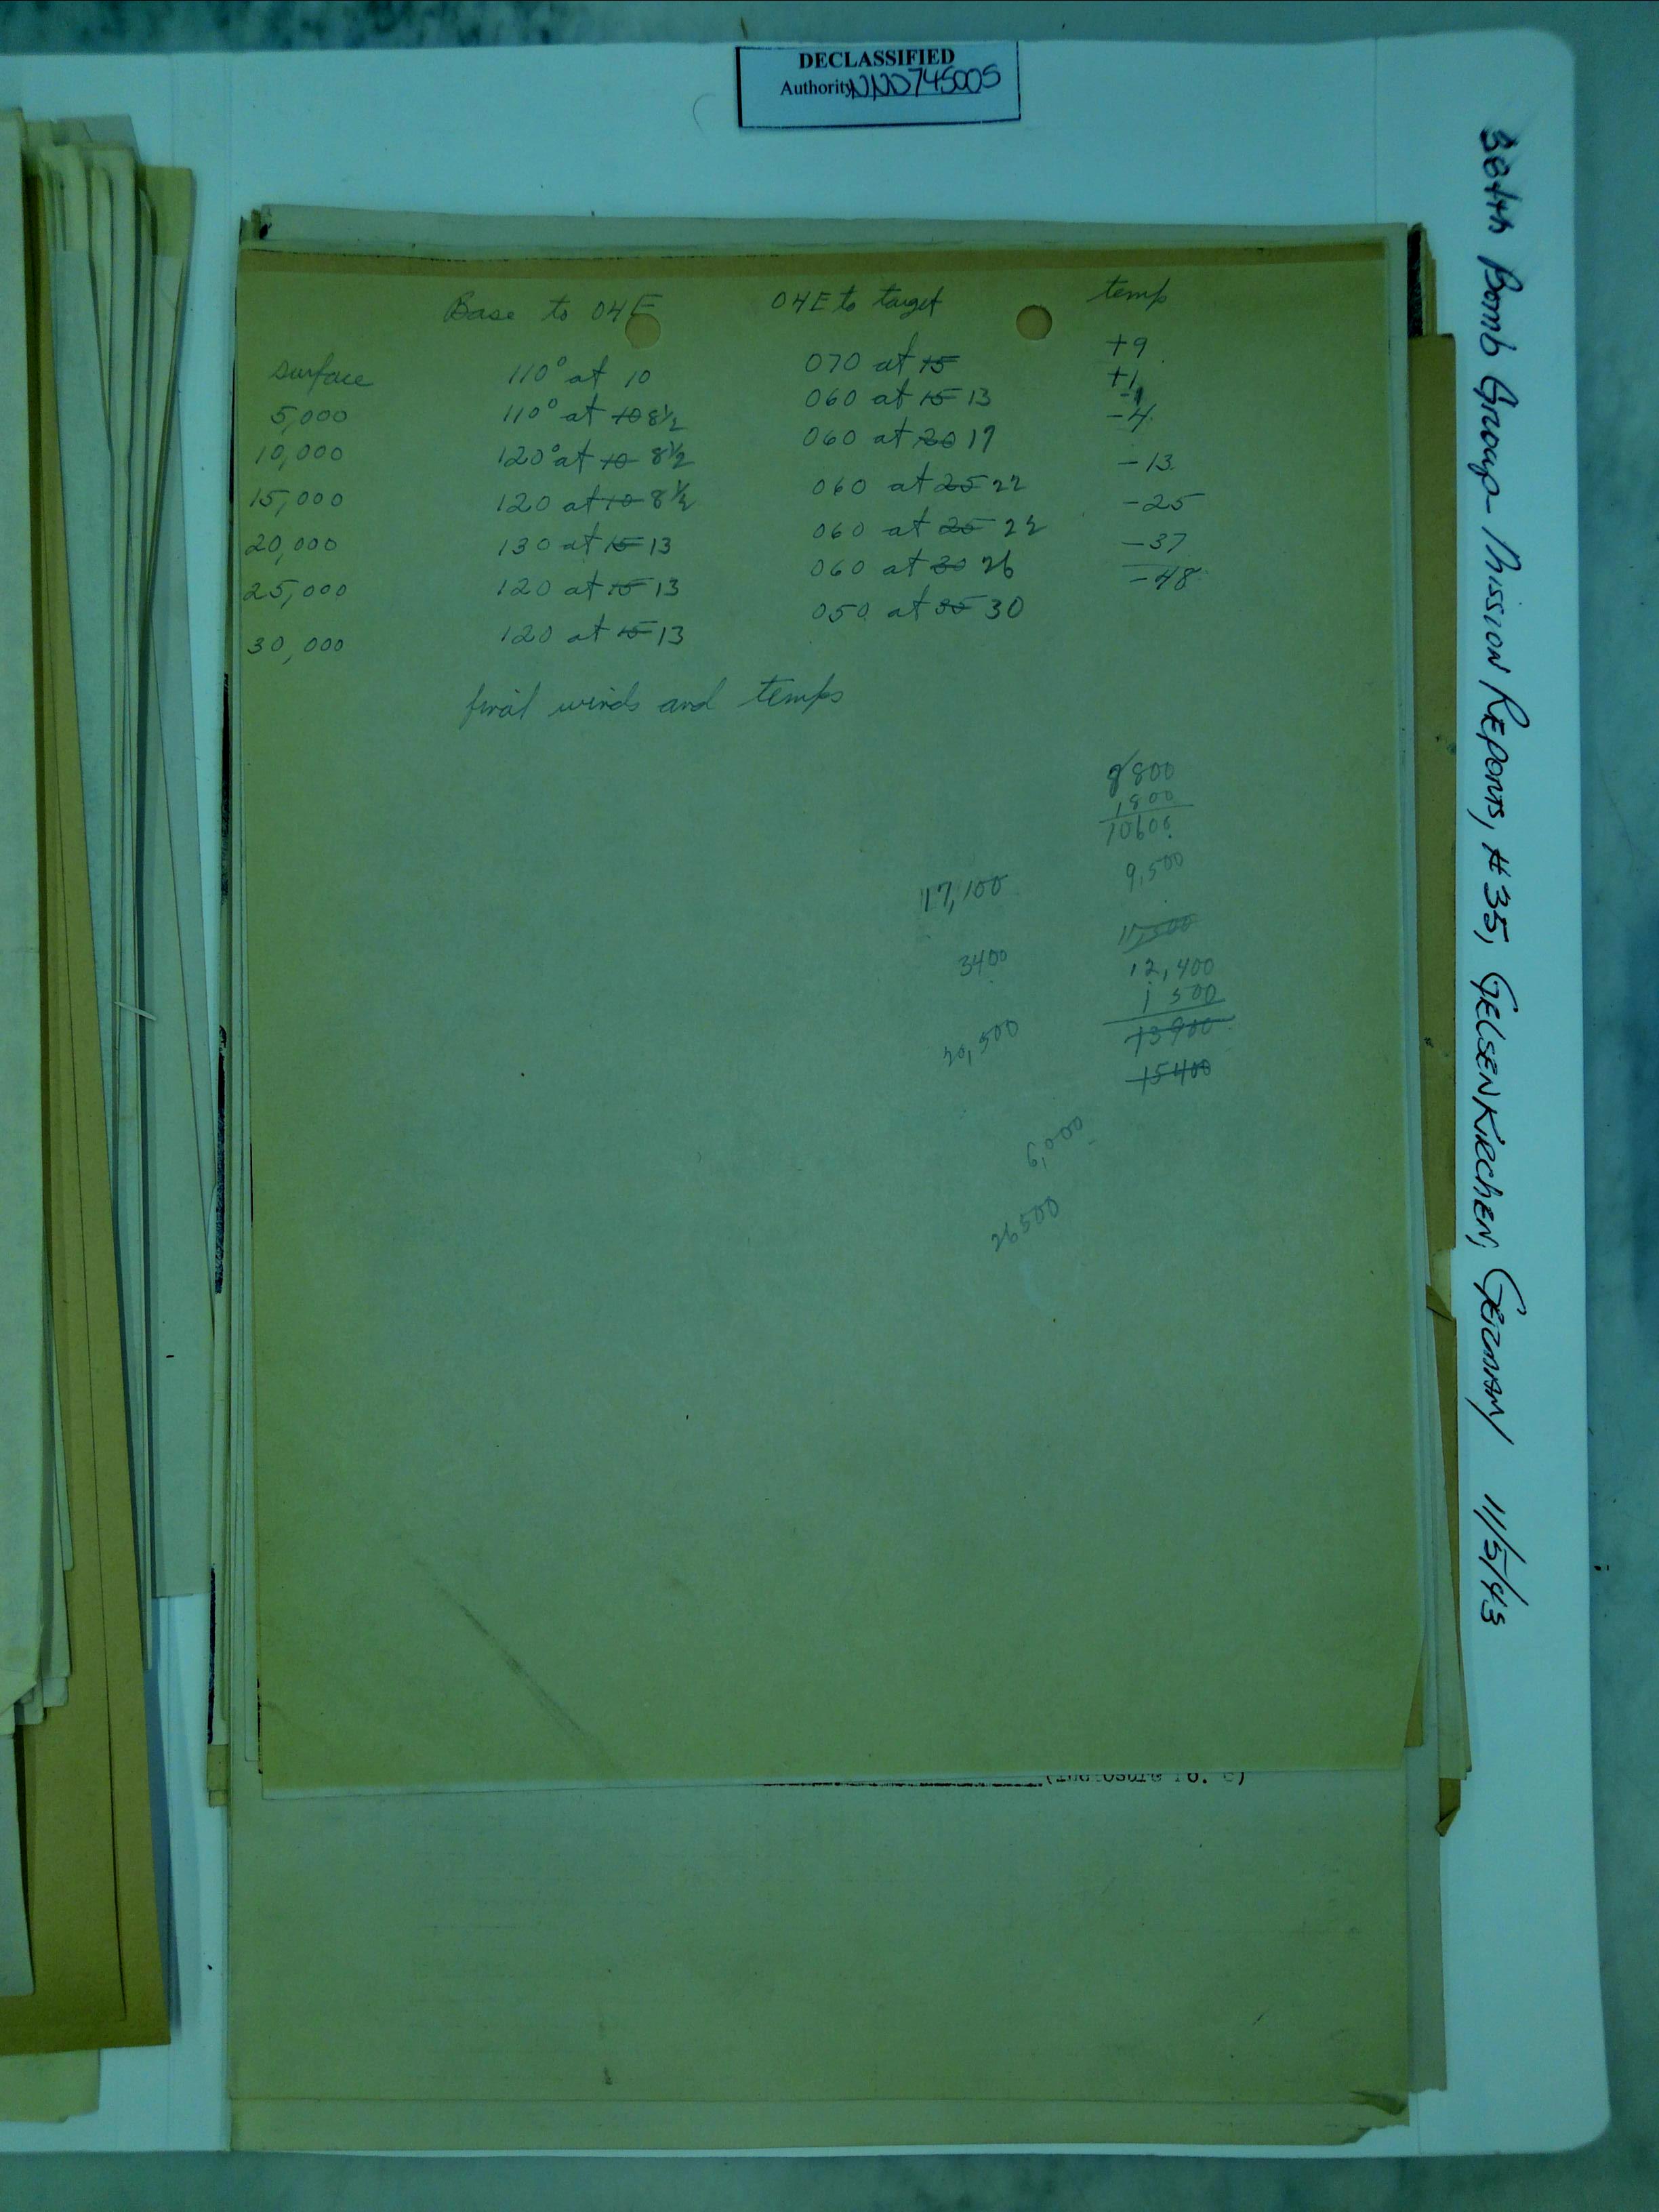 DECLASSIFIED
Authority NND745005
384th Bomb Group Mission Reports, #35, Gelsenkirchen, Germany 11/5/43
Base to 04E 04E to target temp
surface 110° at 10 070 at 15 +9
5,000 110° at 10 8½ 060 at 15 13 +1
10,000 120° at 10 8½ 060 at 20 17 -4
15,000 120 at 10 8½ 060 at 25 22 -13
20,000 130 at 15 13 060 at 25 22 -25
25,000 120 at 15 13 060 at 30 26 -37
30,000 120 at 15 13 050 at 35 30 -48
final winds and temps
8800
1800
10600
9,500
17,100
3400
12,400
1 500
20,500
13900
15400
6,000
26500